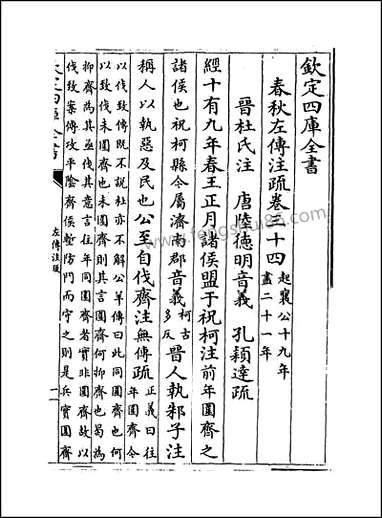 欽定四庫全書
春秋左傳注疏卷三十四
起襄公十九年
盡二十一年
晉杜氏注 唐陸徳明音義 孔穎達疏
經十有九年春王正月諸侯盟于祝柯注前年圍齊之
諸侯也祝柯縣今屬濟南郡音義
柯古
多反
晉人執邾子注
稱人以執惡及民也公至自伐齊注無傳疏
正義曰往
年圍齊今
以伐致傳既不説杜亦不解公羊傳曰此同圍齊也何
以致伐未圍齊也未圍齊則其言圍齊何抑齊也曷為
抑齊為其亟伐其意言往年同圍齊者實非圍齊故以
伐致案傳攻平陰齊侯塹防門而守之則是兵實圍齊
左傳注疏
一
www.fengshui86.com